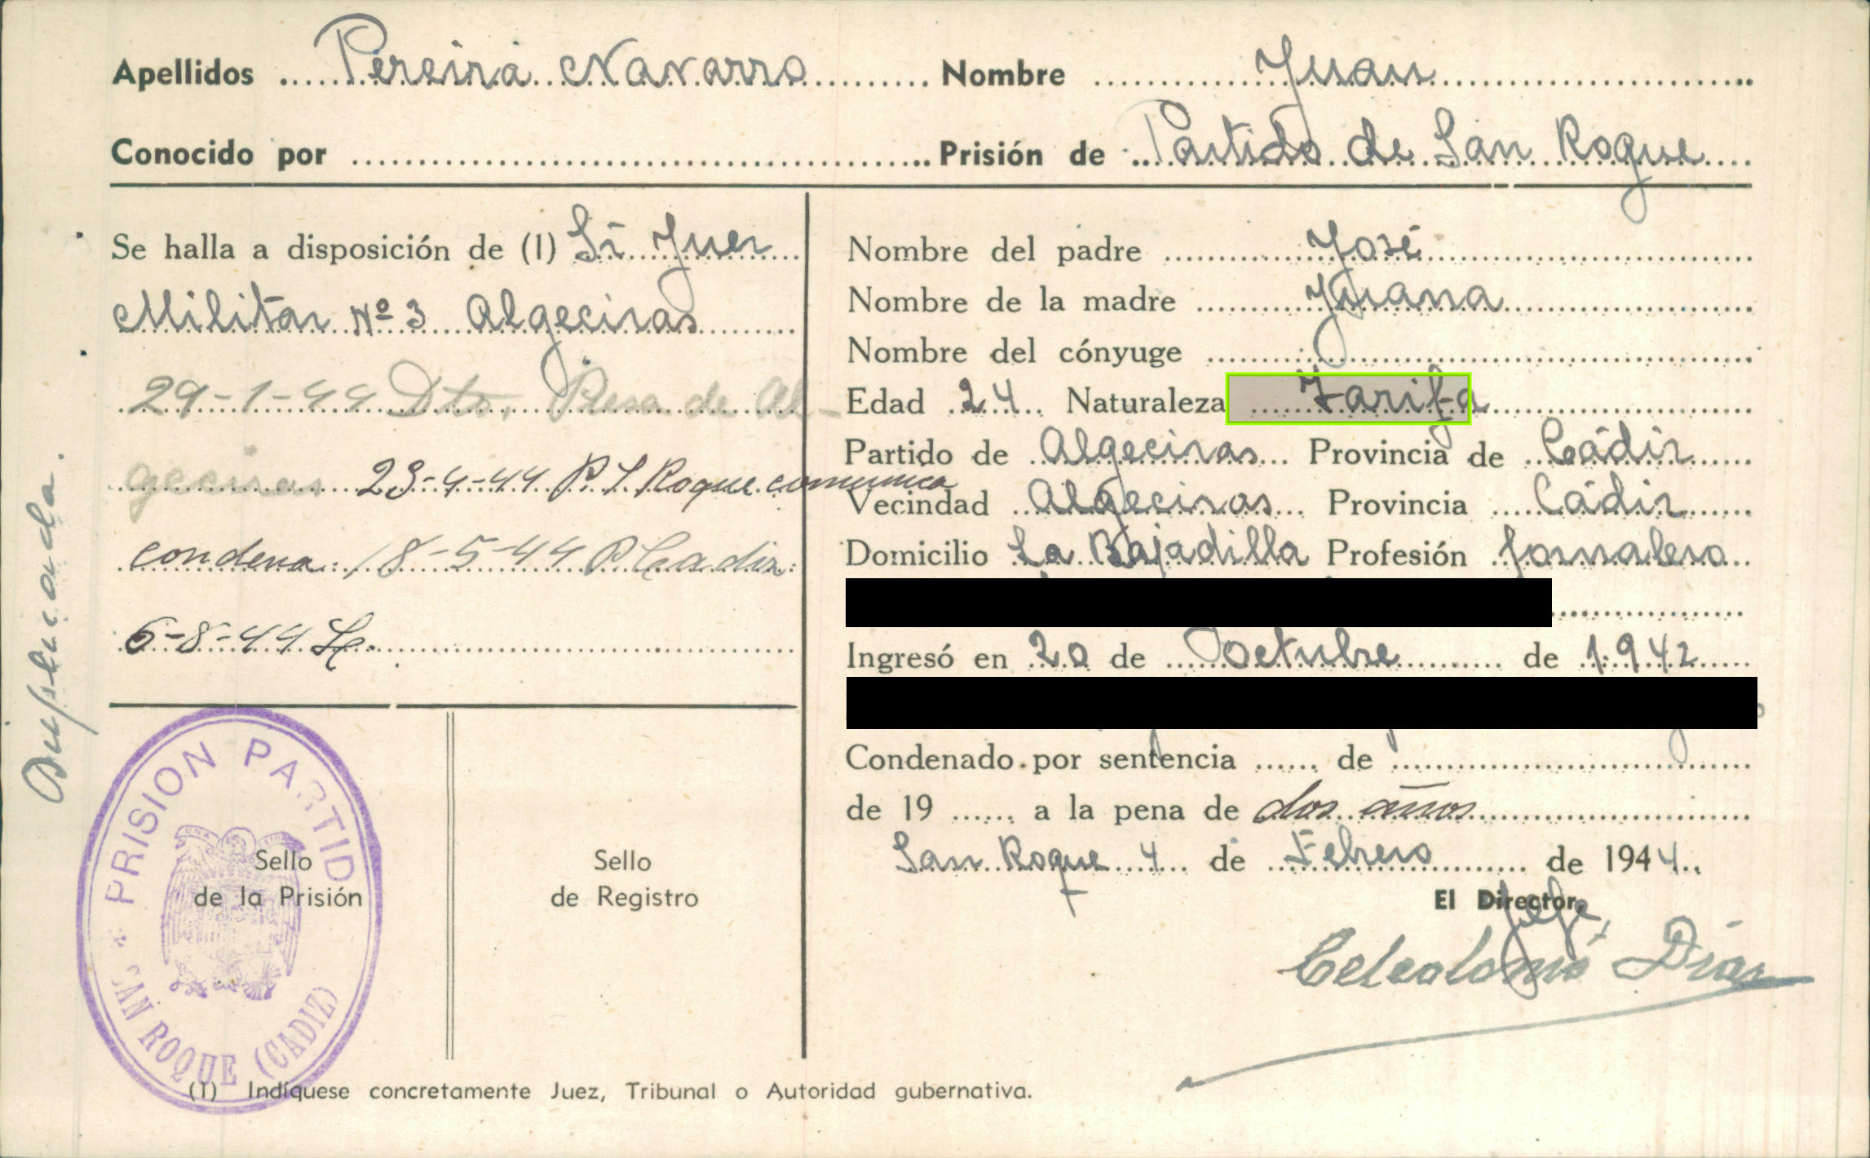 Apellidos Pereira Navarro Nombre Juan
Conocido por Prisión de Partido de San Roque
Se halla a disposición de (1) Sr Juez
Militar Nº 3 Algeciras
29-1-44 Dto. Presa de Al-
geciras 23-4-44 P. S. Roque comunica
condena: 18-5-44 P. Cadiz:
6-8-44
Duplicada.
Nombre del padre José
Nombre de la madre Juana
Nombre del cónyuge
Edad 24 Naturaleza Tarifa
Partido de Algeciras Provincia de Cádiz
Vecindad Algeciras Provincia Cádiz
Domicilio La Bajadilla Profesión Jornalero
Ingresó en 20 de Octubre de 1942
Condenado por sentencia de
de 19 a la pena de dos años
San Roque 4 de Febrero de 1944
El Director,
Jefe,
Díaz
PRISION PARTIDO
SAN ROQUE (CADIZ)
Sello
de la Prisión
Sello
de Registro
(1) Indíquese concretamente Juez, Tribunal o Autoridad gubernativa.